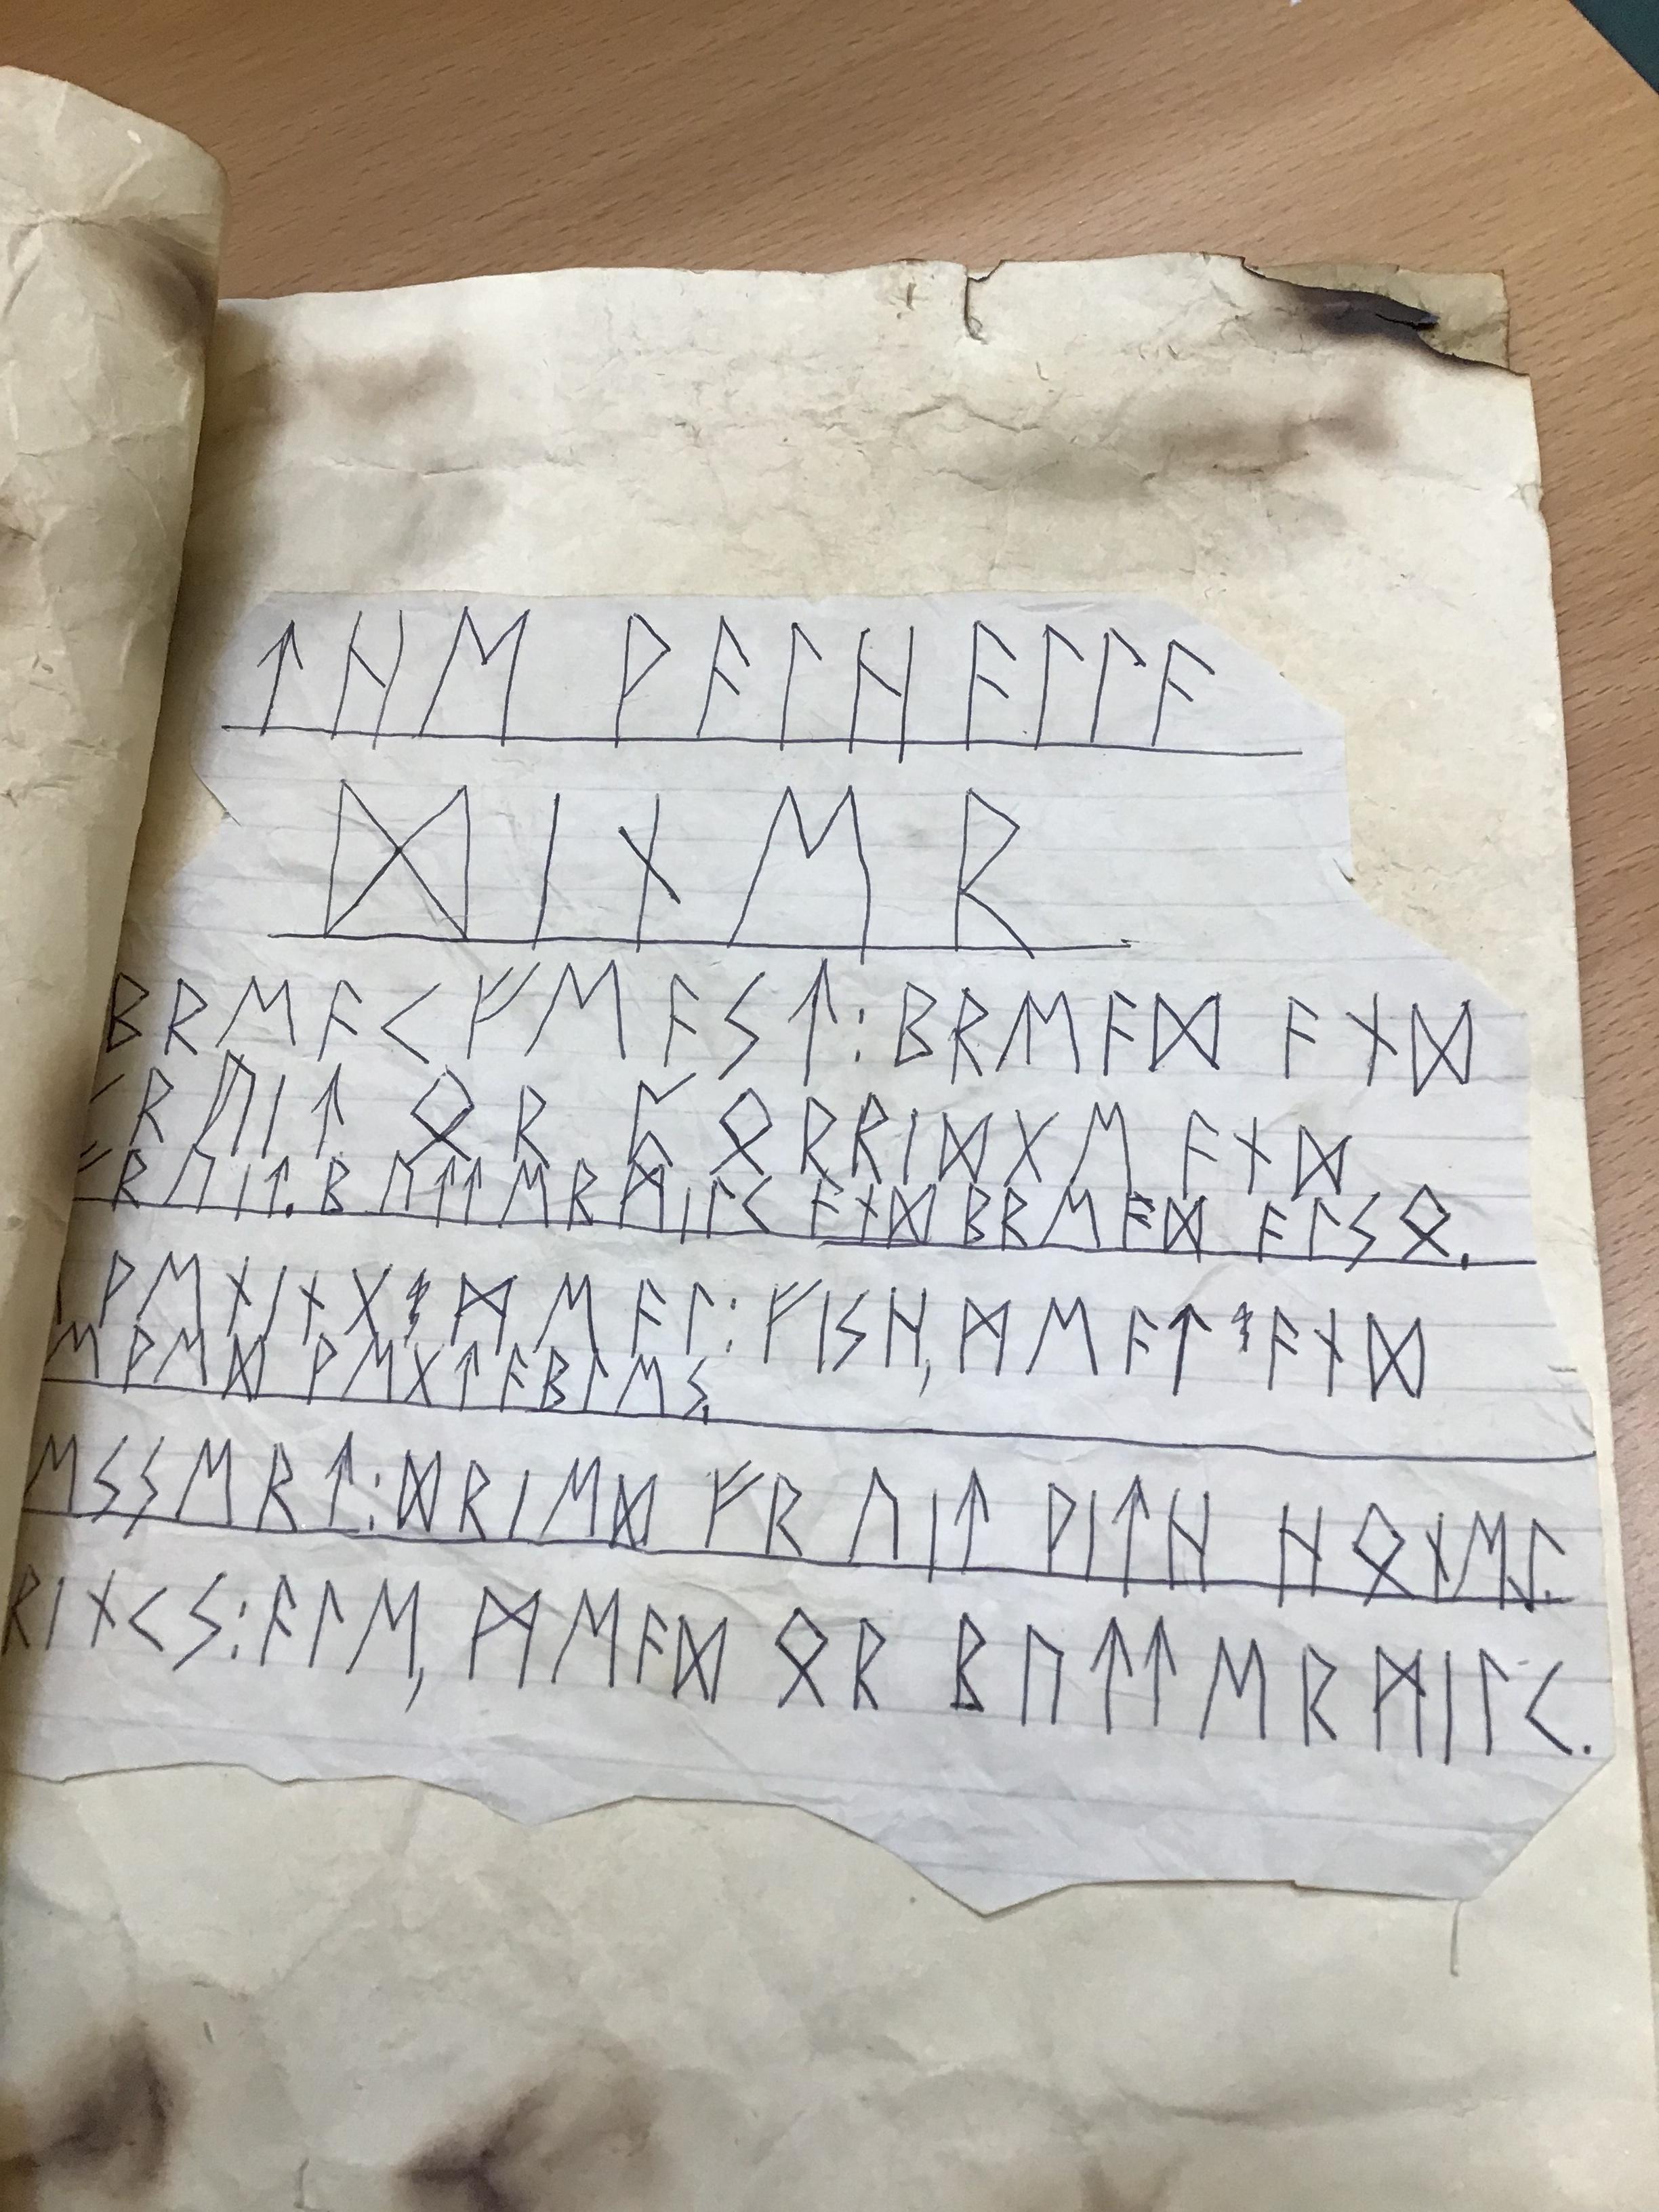 ᛏᚺᛖ ᚹᚨᛚᚺᚨᛚᛚᚨ
ᛞᛁᚾᛖᚱ
ᛒᚱᛖᚨᚲᚠᛖᚨᛊᛏ:ᛒᚱᛖᚨᛞ ᚨᚾᛞ
ᚠᚱᚢᛁᛏ ᛟᚱ ᛈᛟᚱᚱᛁᛞᚷᛖ ᚨᚾᛞ
ᚠᚱᚢᛁᛏ.ᛒᚢᛏᛏᛖᚱᛗᛁᛚᚲ ᚨᚾᛞ ᛒᚱᛖᚨᛞ ᚨᛚᛊᛟ.
ᚹᛖᚾᛁᚾᚷ ᛗᛖᚨᛚ:ᚠᛁᛊᚺ, ᛗᛖᚨᛏ ᚨᚾᛞ
ᛖᚹᛖᛞ ᚹᛖᚷᛏᚨᛒᛚᛖᛊ.
ᛖᛊᛊᛖᚱᛏ:ᛞᚱᛁᛖᛞ ᚠᚱᚢᛁᛏ ᚹᛁᛏᚺ
ᚱᛁᚾᚲᛊ:ᚨᛚᛖ, ᛗᛖᚨᛞ ᛟᚱ ᛒᚢᛏᛏᛖᚱᛗᛁᛚᚲ.